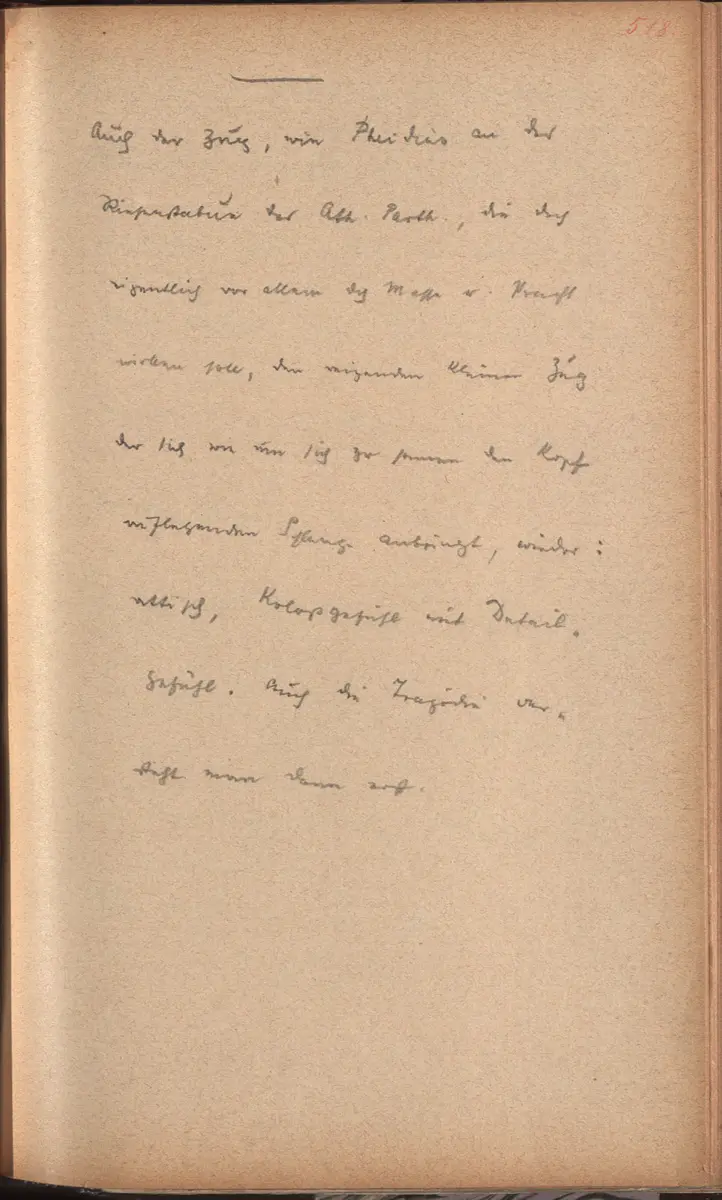 518.
Auch der Zug, wie Pheidias an der
Riesenstatue der Ath. Parth., die doch
eigentlich vor allem dch Masse u. Pracht
wirken soll, den reizenden kleinen Zug
der sich wie um sich zu sonnen den Kopf
auflegenden Schlange anbringt, wieder:
attisch, Koloßgefühl mit Detail-
gefühl. Auch die Tragödie ver-
steht man dann erst.